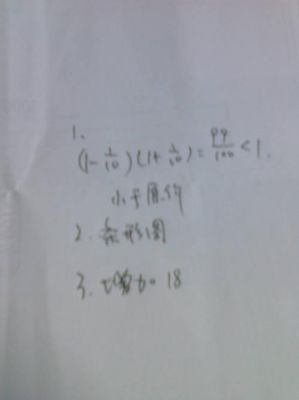 1、
(1-1/10)(1+1/10)=99/100<1.
小于原价
2. 条形图
3. 18